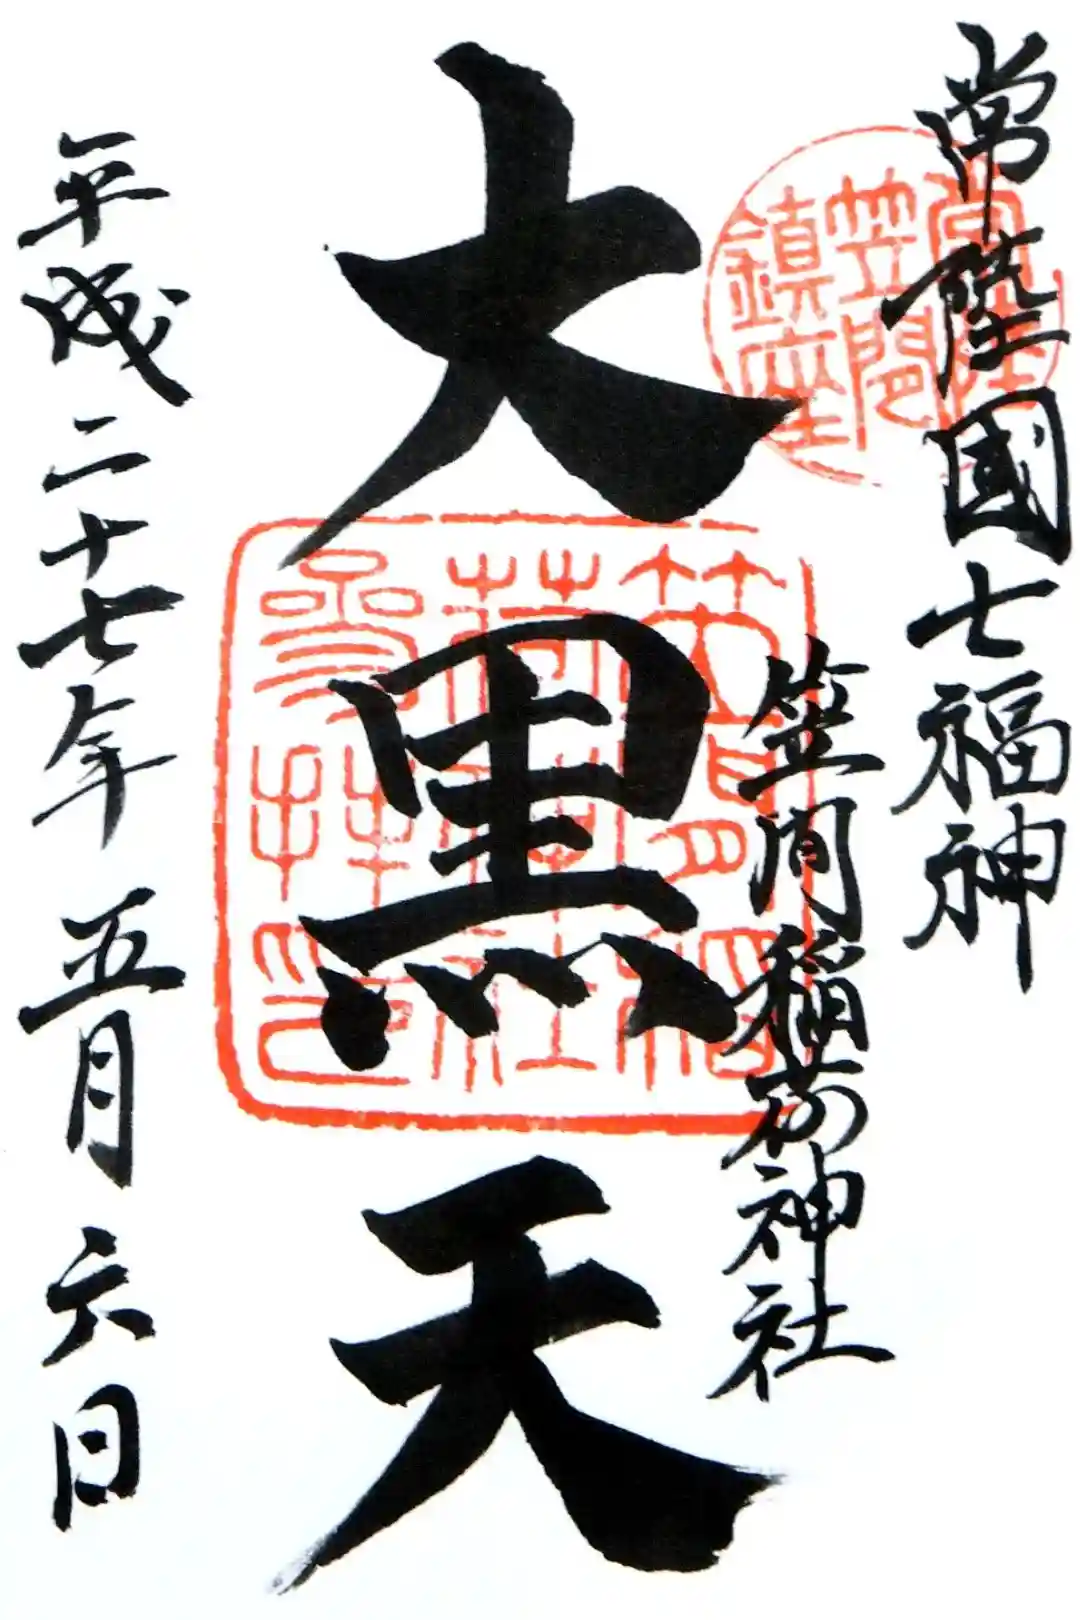 常陸國七福神
笠間稲荷神社
常陸
笠間
鎮座
大黒天
笠間稲
荷神社
参拝之印
平成二十七年五月六日